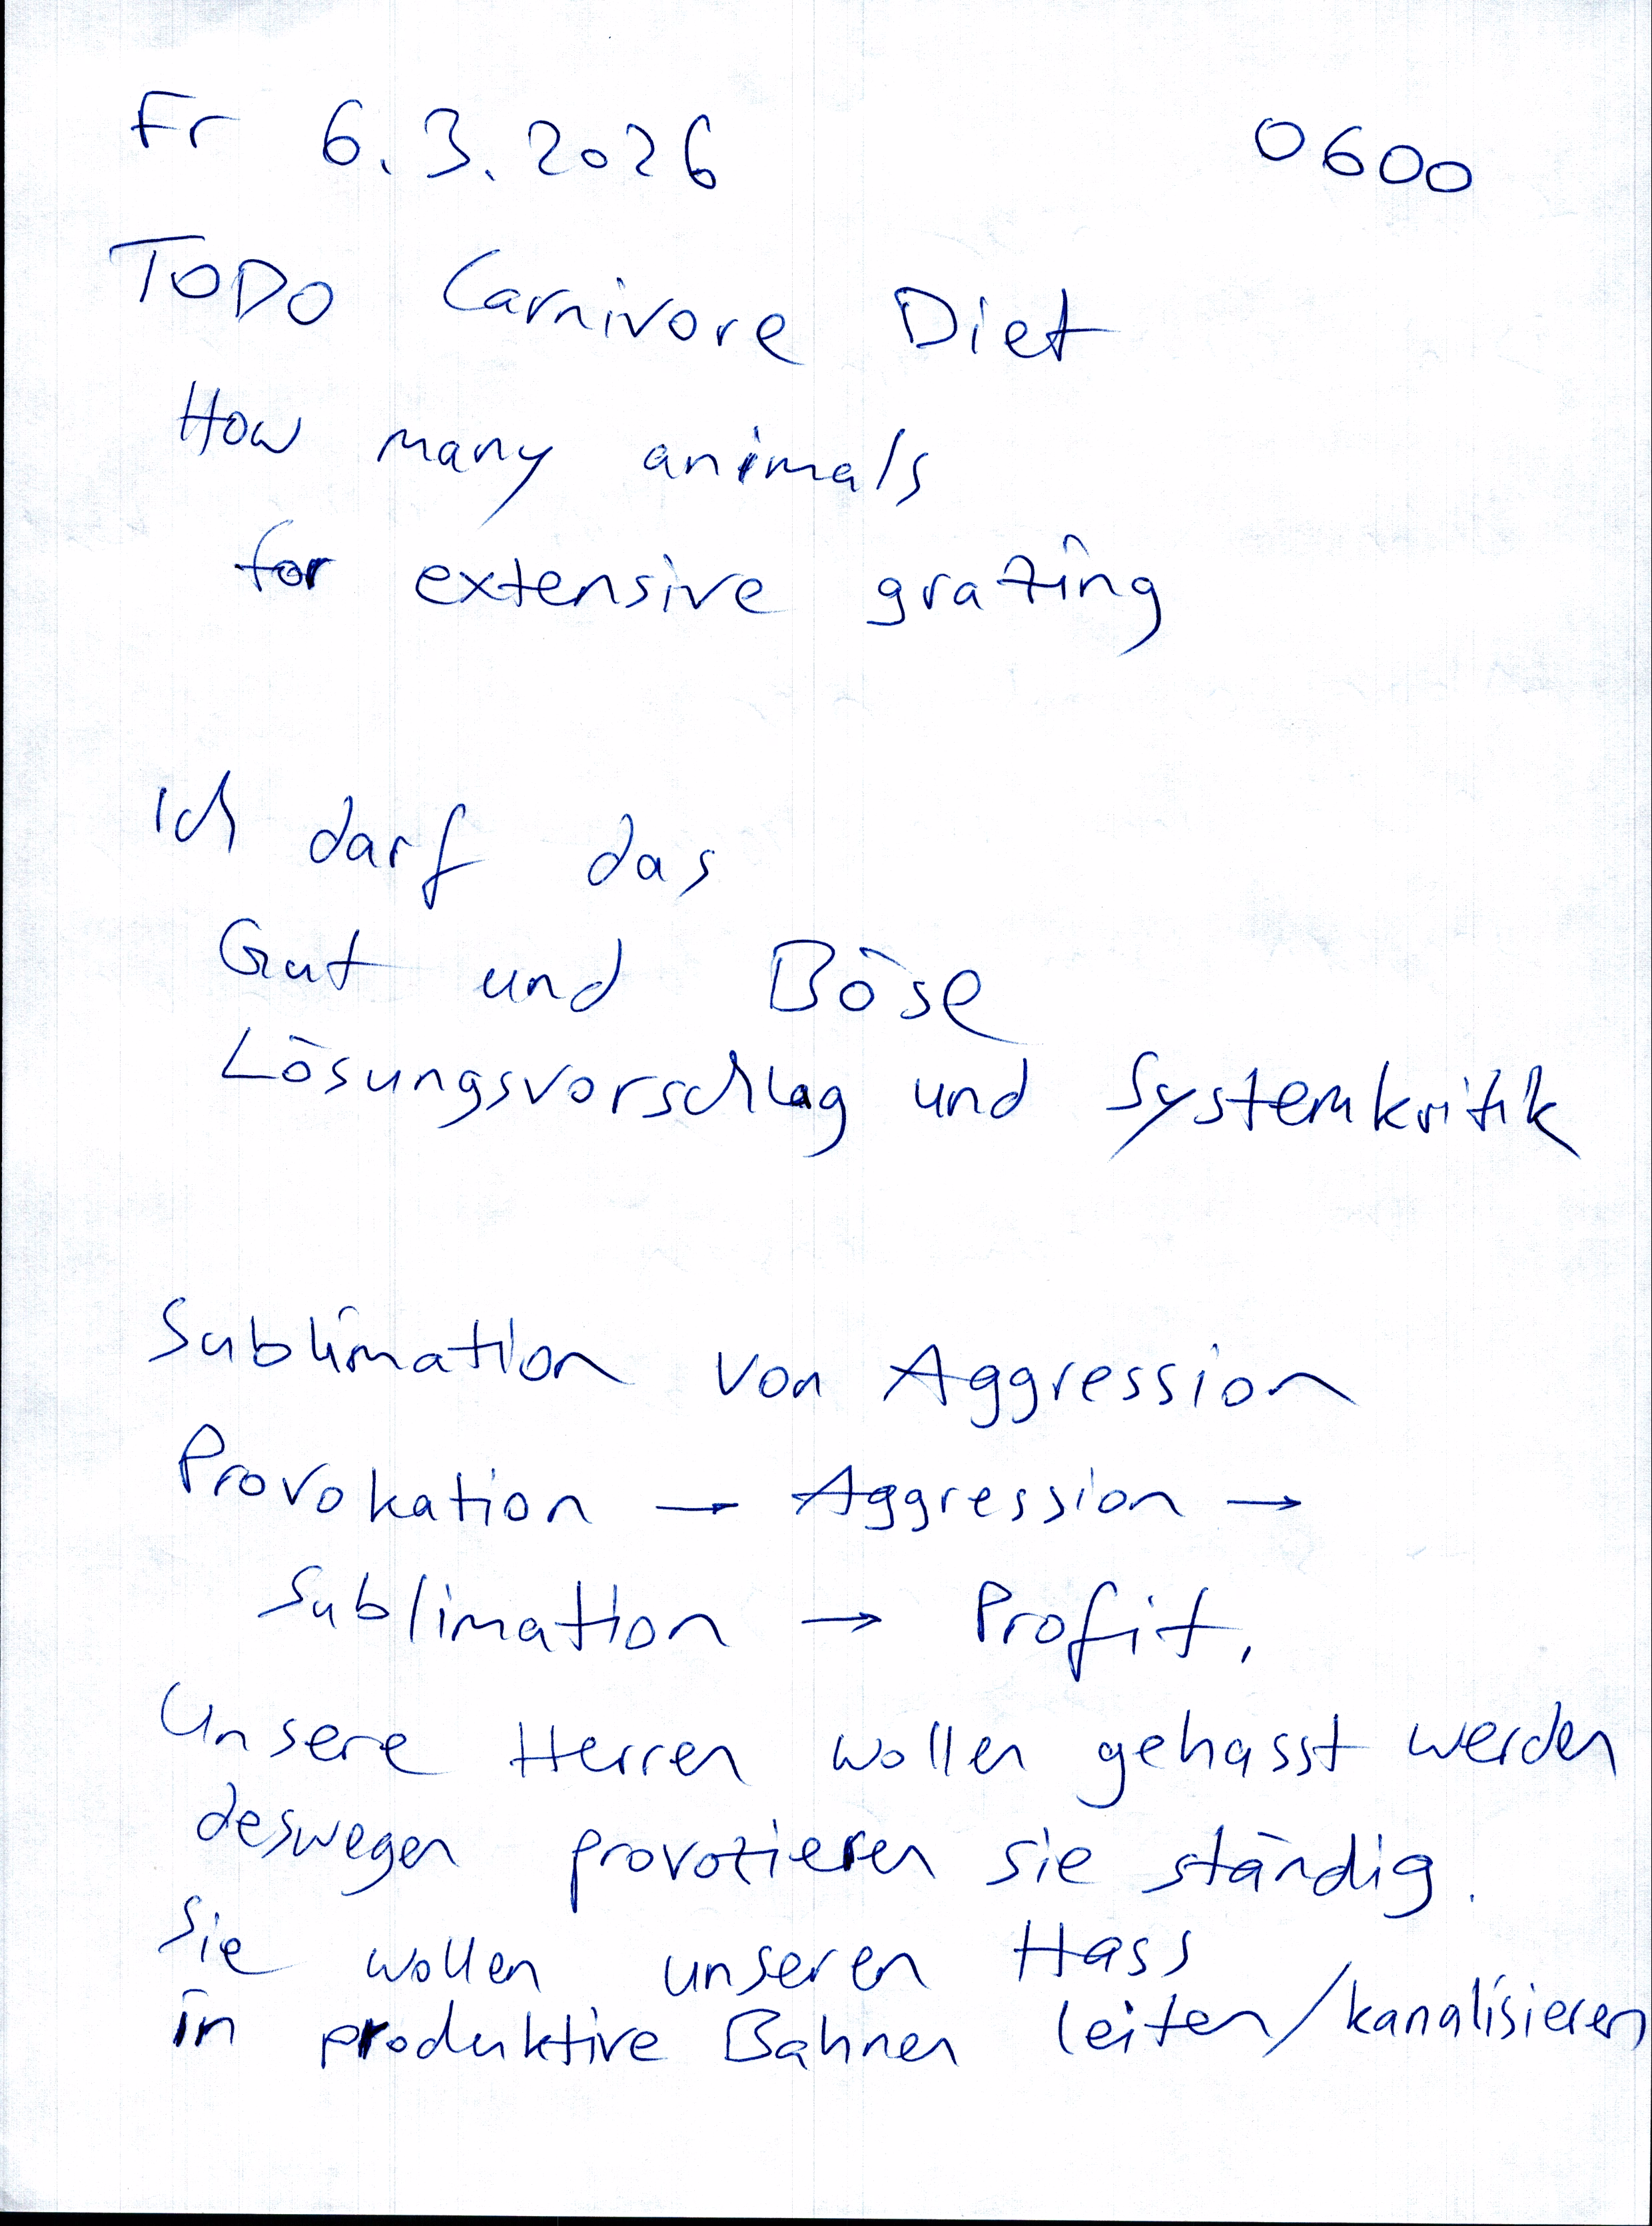 Fr 6.3.2026 0600
TODO Carnivore Diet
How many animals
for extensive grazing
Ich darf das
Gut und Böse
Lösungsvorschlag und Systemkritik
Sublimation von Aggression
Provokation → Aggression →
Sublimation → Profit.
Unsere Herren wollen gehasst werden
deswegen provozieren sie ständig.
Sie wollen unseren Hass
in produktive Bahnen leiten/kanalisieren